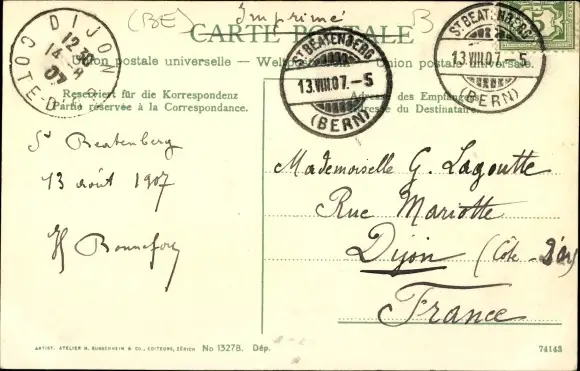 (BE) Imprimé B
CARTE POSTALE
Union postale universelle — Union postale universale.
Reserviert für die Korrespondenz
Partie réservée à la Correspondance.
Adresse des Empfängers
Adresse du Destinataire.
DIJON
COTE-D
12
14-8
07
ST BEATENBERG
13.VIII.07.-5
(BERN)
ST BEATENBERG
13.VIII.07.-5
(BERN)
5
St Beatenberg
13 août 1907
Bonnefoy
Mademoiselle G. Lagoutte
Rue Mariotte
Dijon (Côte-d'Or)
France
ARTIST. ATELIER H. GUGGENHEIM & CO., EDITEURS, ZÜRICH No 13278. Dép.
74143